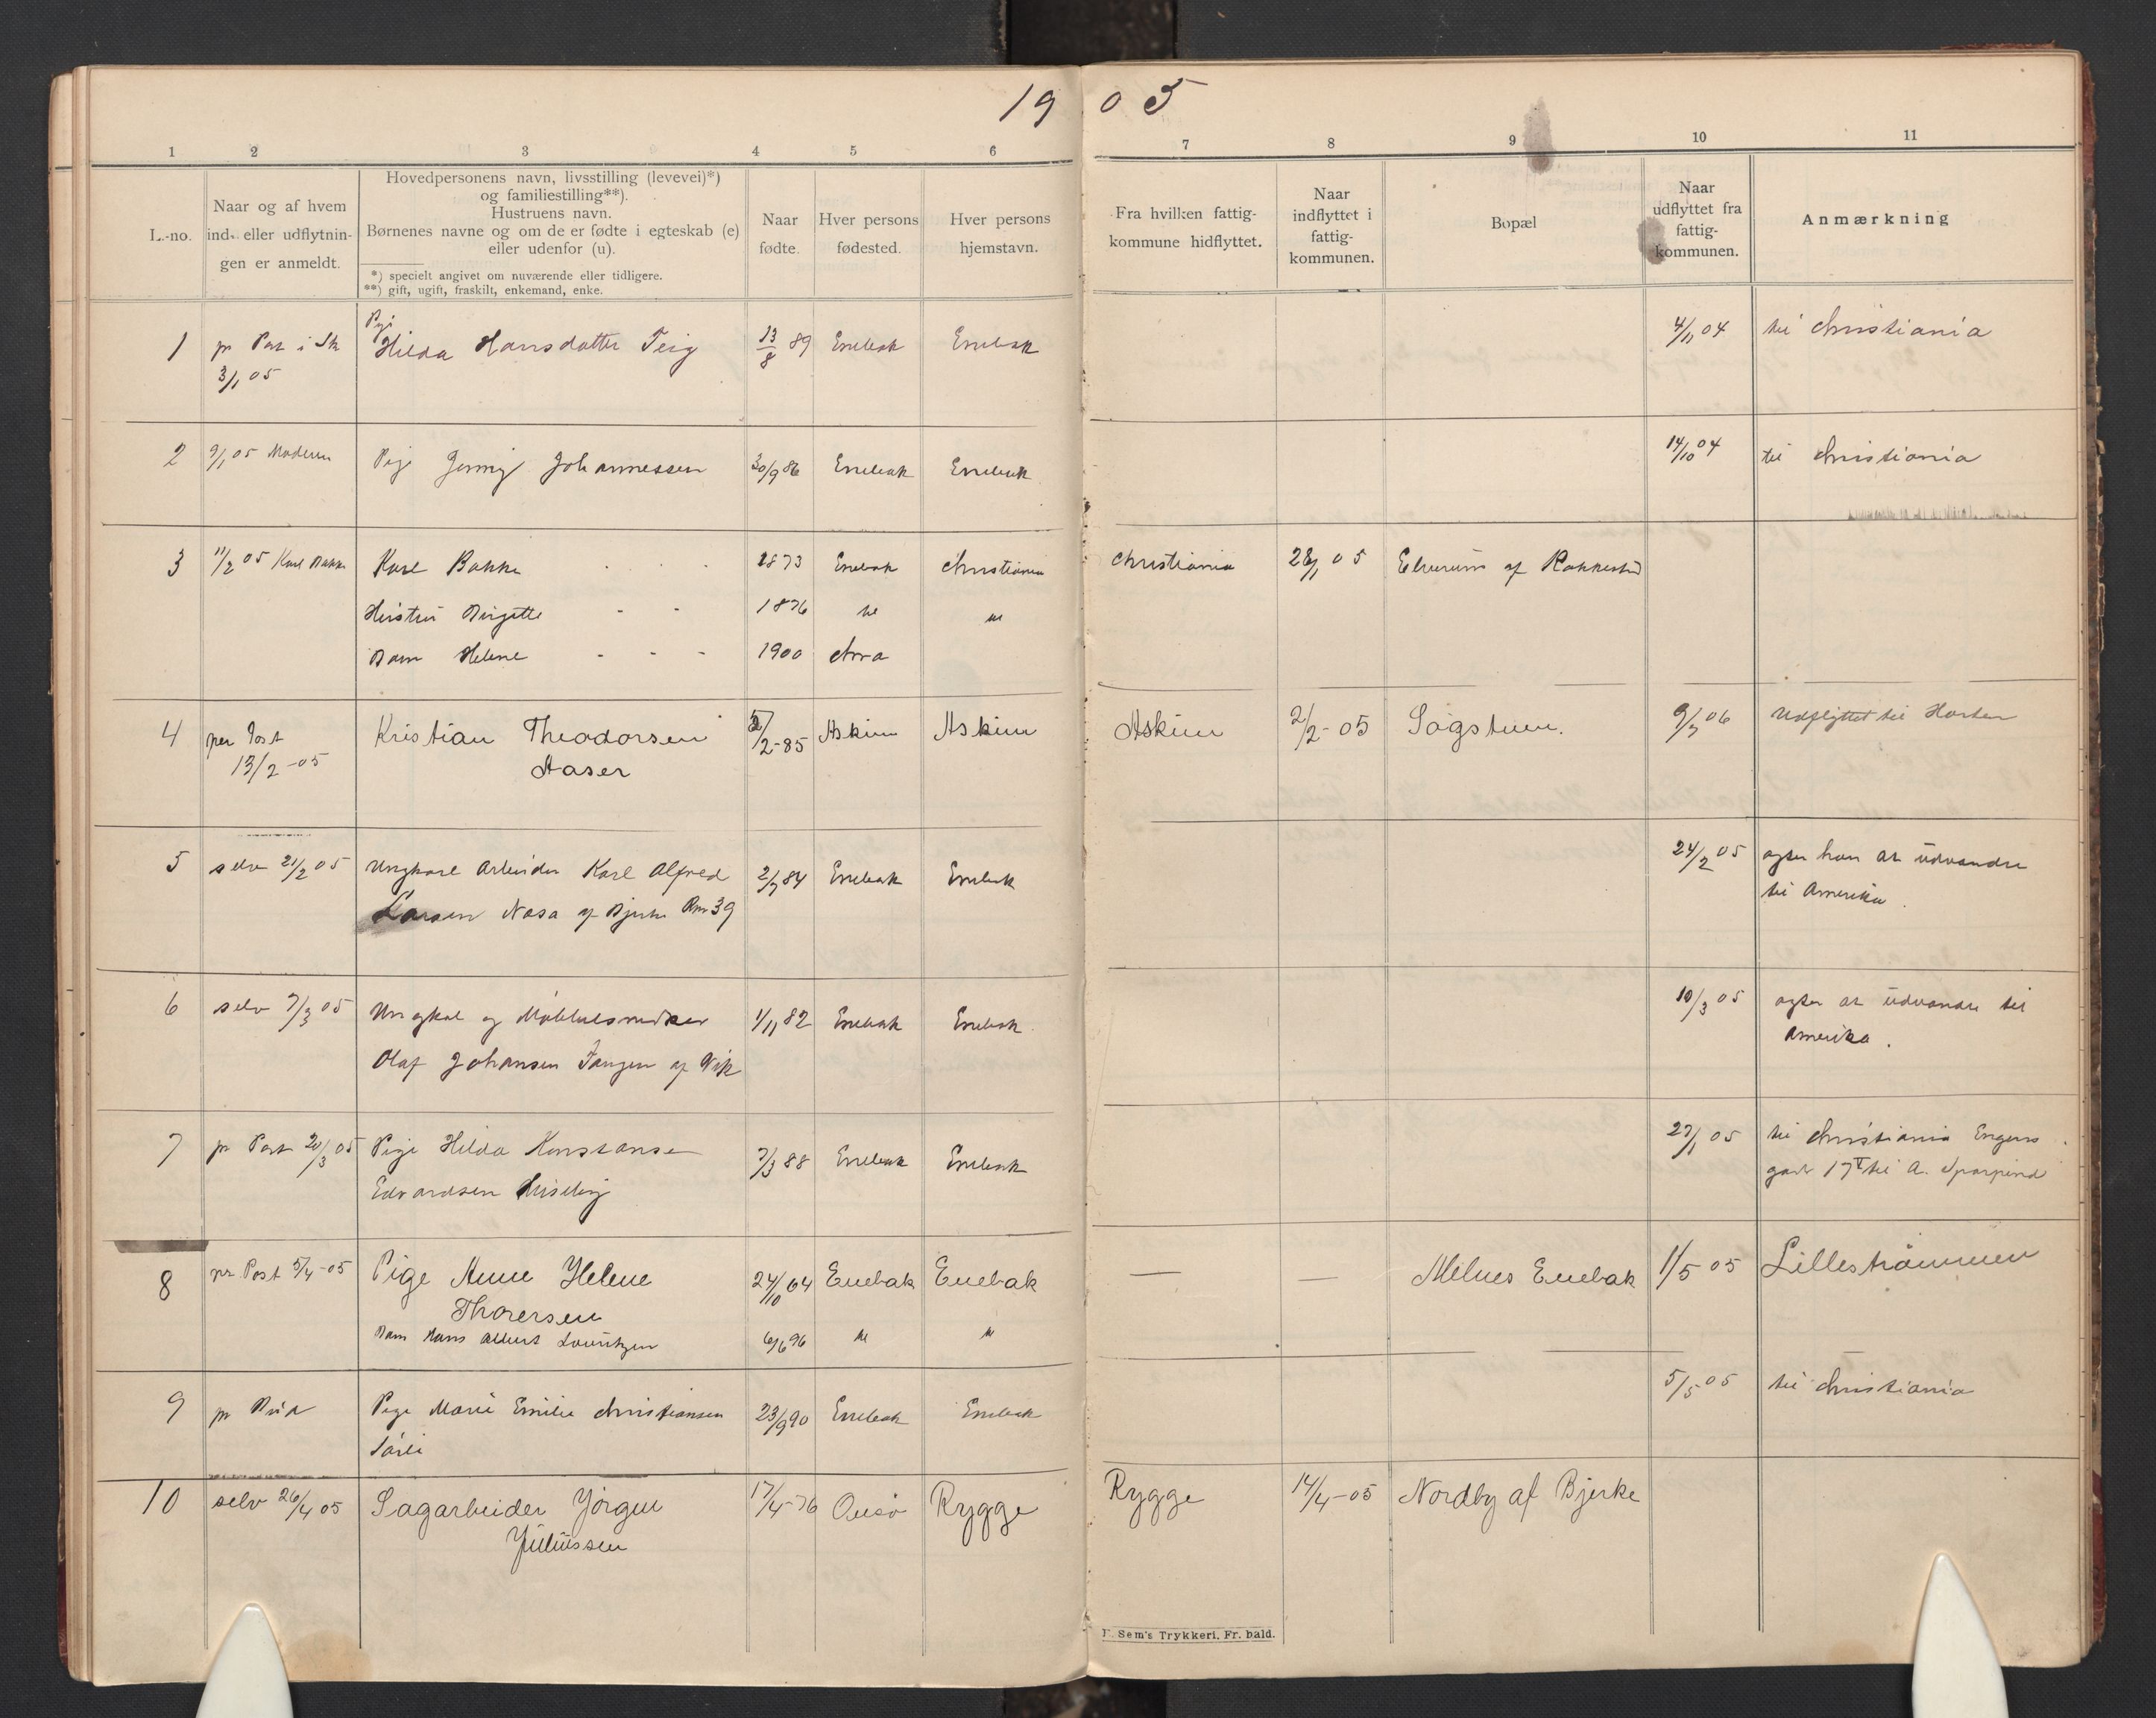 19 05
1 2 3 4 5 6 7 8 9 10 11
L.-no.
Naar og af hvem
ind- eller udflytnin-
gen er anmeldt.
Hovedpersonens navn, livsstilling (levevei)*)
og familiestilling**).
Hustruens navn.
Børnenes navne og om de er fødte i egteskab (e)
eller udenfor (u).
*) specielt angivet om nuværende eller tidligere.
**) gift, ugift, fraskilt, enkemand, enke.
Naar
fødte.
Hver persons
fødested.
Hver persons
hjemstavn.
Fra hvilken fattig-
kommune hidflyttet.
Naar
indflyttet i
fattig-
kommunen.
Bopæl
Naar
udflyttet fra
fattig-
kommunen.
Anmærkning
Pige
1 pr Post i Sk Hilda Hansdatter Teig 13/8 89 Enebak Enebak 4/11 04 til Christiania
3/1 05
2 9/1 05 Moderen Pige Jenny Johannessen 30/9 86 Enebak Enebak 14/10 04 til Christiania
3 11/2 05 Karl Bakke Karl Bakke 1873 Enebak Christiania Christiania 28/1 05 af Rakkestad
Hustru Birgitte 1876 "
Barn Helene 1900 Chra
4 per Post Kristian Theodorsen 2-85 Askim Askim Askim 2/2-05 Sagstuen. 9/3 06 Udflyttet til Horten
13/2-05 Haser
5 selv 21/2 05 Ungkarl Arbeider Karl Alfred 2/7 84 Enebak Enebak 24/2 05 agter han at udvandre
Larsen af Bjerke 39 til Amerika.
6 selv 7/3 05 Ungkarl og Møbelsnedker 1/11 82 Enebak Enebak. 10/3 05 agter at udvandre til
Olaf Johansen Tangen af Vik Amerika.
7 pr Post 20/3 05 Pige Hilda Konstanse 7/3 88 Enebak Enebak 27/1 05 til Christiania Engens
Edvardsen gade 17 til A.
8 pr Post 5/4-05 Pige Anne Helene 24/10 64 Enebak Enebak — — Melnes Enebak 1/5 05 Lillestrømmen
Thorersen
Barn Hans Albert Lauritzen 6/6 96 " "
9 pr Bud Pige Marie Emilie Christiansen 23/9 90 Enebak Enebak 5/5 05 til Christiania
Sørli
10 selv 26/4 05 Sagarbeider Jørgen 17/4-76 Onsø Rygge Rygge 14/4-05 Nordby af Bjerke
Juliussen
Sem's Trykkeri, Fr. hald.